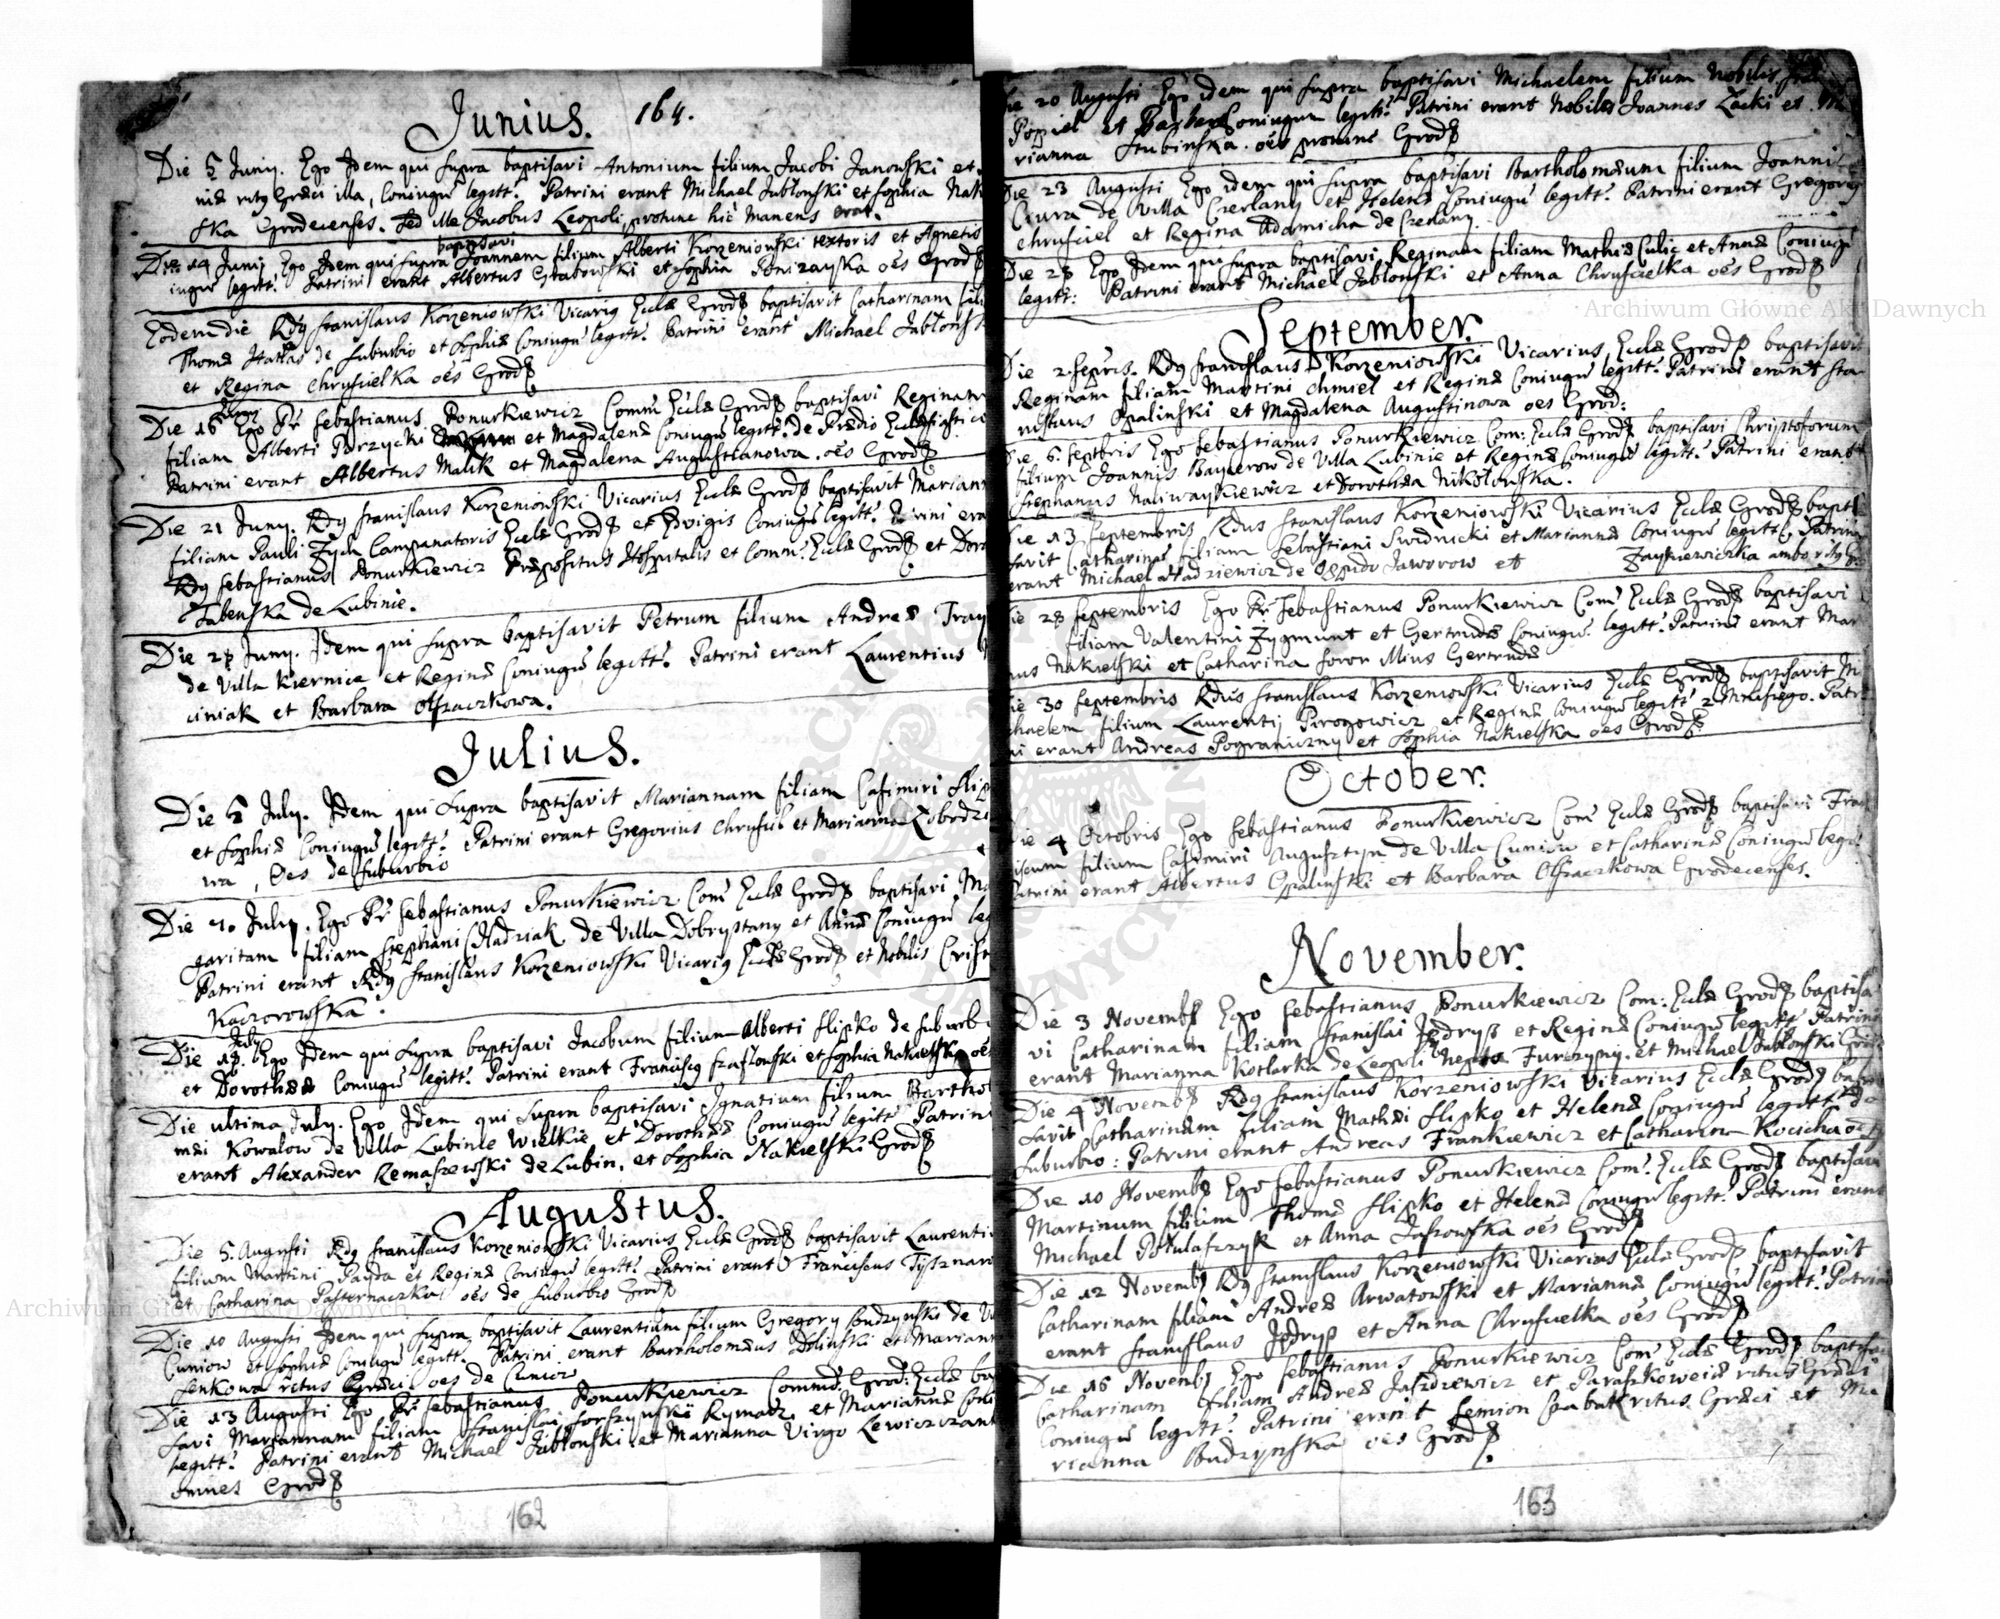 Junius. 164.
Die 5 Juny. Ego Idem qui supra baptisavi Antonium filium Jacobi Janowski et
niæ ritus Græci illa, Coniugu legitt: Patrini erant Michael Jablonski et Sophia Naki
ska Grodecenses. Sed ille Jacobus Leopoli, protunc hic manens erat.
baptisavi
Die 14 Juny Ego Idem qui supra Joannem filium Alberti Korzeniowski textoris et Agnetis
iugu legitt: Patrini erant Albertus Grabowski et Sophia oẽs Grod
Eodem die Rdus Stanislaus Korzeniowski Vicarius Eccla Grod baptisavit Catharinam fili
Thomæ de Suburbio et Sophiæ Coniugu legitt: Patrini erant Michael Jablonsk
et Regina Chruscielka oẽs Grod
Die 16 Ego Pr Sebastianus Ponurkiewicz Comm Eccla Grod baptisavi Reginam
filiam Alberti Parzycki et Magdalenæ Coniugu legitt: de Prædio
Patrini erant Albertus Malik et Magdalena Augustianowa. oẽs Grod
Die 21 Juny. Rdus Stanislaus Korzeniowski Vicarius Eccla Grod baptisavit Mariann
filiam Pauli Zych Campanatoris Eccla Grod et Coniugu legitt: Patrini era
Rdus Sebastianus Ponurkiewicz Præpositus Hospitalis et Comm: Eccla Grod et Doro
Tabenska de Lubinie.
Die 28 Juny. Idem qui supra baptisavit Petrum filium Andreæ
de Villa Kiernice et Reginæ Coniugu legitt: Patrini erant Laurentius
ciniak et Barbara Olszaczkowa.
Julius.
Die 2 July. Idem qui supra baptisavit Mariannam filiam Casimiri Slip
et Sophiæ Coniugu legitt: Patrini erant Gregorius Chrusciel et Marianna
wa, Oes de Suburbio
Die 10 July. Ego Pr Sebastianus Ponurkiewicz Com Eccla Grod baptisavi Ma
garitam filiam Stephani Hadziak de Villa Dobrystany et Annæ Coniugu leg
Patrini erant Rdus Stanislaus Korzeniowski Vicarius Eccla Grod et Nobilis
Kaczorowska.
July
Die 18. Ego Idem qui supra baptisavi Jacobum filium Alberti Slipko de Suburb
et Dorotheæ Coniugu legitt: Patrini erant Francisus et Sophia Nakielska oẽs
Die ultima July. Ego Idem qui supra baptisavi Ignatium filium Bartholo
mæi Kowalow de Villa Lubinie Wielkie et Dorotheæ Coniugu legitt: Patrini
erant Alexander Remaszewski de Lubin. et Sophia Nakielski Grod
Augustus.
Die 5. Augusti Rdus Stanislaus Korzeniowski Vicarius Eccla Grod baptisavit Laurenti
filium Martini Payda et Reginæ Coniugu legitt: Patrini erant Franciscus
et Catharina Pasternaczka oẽs de Suburbio Grod
Die 10 Augusti Idem qui supra baptisavit Laurentium filium Gregory Budzynski de Vi
Cuniow et Sophiæ Coniugu legitt: Patrini erant Bartholomæus Dolinski et Mariann
Senkowa ritus Græci oes de Cuniow
Die 13 Augusti Ego Pr Sebastianus Ponurkiewicz Comm: Grod: Eccla bap
savi Mariannam filiam Stanislai Rymarz et Mariannæ Coni
legitt: Patrini erant Michael Jablonski et Marianna Virgo
omnes Grod
162
Die 20 Augusti Ego idem qui supra baptisavi Michaelem filium Nobilis
Popiel et Barbaræ Coniugum legitt: Patrini erant Nobiles Joannes Zacki et Ma
rianna Stubinska. oẽs protunc Grod
Die 23 Augusti Ego idem qui supra baptisavi Bartholomæum filium Joanni
Ciura de Villa Czerlany et Helenæ Coniugu legitt: Patrini erant Gregorius
Chrusciel et Regina Adamicha de Czerlany
Die 28 Ego Idem qui supra baptisavi Reginam filiam Mathiæ Culic et Annæ Coniugu
legitt: Patrini erant Michael Jablonski et Anna Chruscielka oẽs Grod
September.
Die 2 Sepris. Rdus Stanislaus Korzeniowski Vicarius Eccla Grod baptisavit
Reginam filiam Martini Chmiel et Reginæ Coniugu legitt: Patrini erant Sta
nislaus Opalinski et Magdalena Augustinowa oes Grod:
Die 6. Septbris Ego Sebastianus Ponurkiewicz Com: Eccla Grod baptisavi Chryptoforum
filium Joannis de Villa Lubinie et Reginæ Coniugu legitt: Patrini erant
Stephanus Naliwaykiewicz et Dorothea Nikolowska.
Die 13 Septembris Rdus Stanislaus Korzeniowski Vicarius Eccla Grod bapti
savit Catharinam filiam Sebastiani Swidnicki et Mariannæ Coniugu legitt: Patrini
erant Michael Hadziewicz de Oppido Jaworow et Zaykiewiczka ambo ritus
Die 28 Septembris Ego Pr Sebastianus Ponurkiewicz Com Eccla Grod baptisavi
filiam Valentini Zygmunt et Gertrudæ Coniugu legitt: Patrini erant Mar
nus Nakielski et Catharina soror illius Gertrudæ
Die 30 Septembris Rdus Stanislaus Korzeniowski Vicarius Eccla Grod baptisavit Mi
chaelem filium Laurentij Pironowicz et Reginæ Coniugu legitt: Patr
ni erant Andreas Pograniczny et Sophia Nakielska oes Grod
October.
Die 4 Octobris Ego Sebastianus Ponurkiewicz Com Eccla Grod baptisavi Fran
iscum filium Casimiri Augusztyn de Villa Cuniow et Catharinæ Coniugu legit
Patrini erant Albertus Opalinski et Barbara Olszaczkowa Grodecenses.
November.
Die 3 Novemb Ego Sebastianus Ponurkiewicz Com: Eccla Grod baptisa
vi Catharinam filiam Stanislai Jędrys et Reginæ Coniugu legitt: Patrini
erant Marianna Kotlarka de Leopoli et Michael Jablonski Grod
Die 4 Novemb Rdus Stanislaus Korzeniowski Vicarius Eccla Grod bapti
savit Catharinam filiam Mathæi Slipko et Helenæ Coniugu legitt: de
Suburbio: Patrini erant Andreas Frankiewicz et Catharina Kocicha oẽs
Die 10 Novemb Ego Sebastianus Ponurkiewicz Com: Eccla Grod baptisavi
Martinum filium Thomæ Slipko et Helenæ Coniugu legitt: Patrini erant
Michael et Anna oẽs Grod
Die 12 Novemb Rdus Stanislaus Korzeniowski Vicarius Eccla Grod baptisavit
Catharinam filiam Andreæ Arwatowski et Mariannæ Coniugu legitt: Patrini
erant Stanislaus Jędrys et Anna Chruscielka oẽs Grod
Die 16 Novemb Ego Sebastianus Ponurkiewicz Com Eccla Grod baptisavi
Catharinam filiam Andreæ et ritus Græci
Coniugu legitt: Patrini erant Semion ritus Græci et Ma
rianna Budzynska oẽs Grod
163
Archiwum Główne Akt Dawnych
Archiwum Główne Akt Dawnych